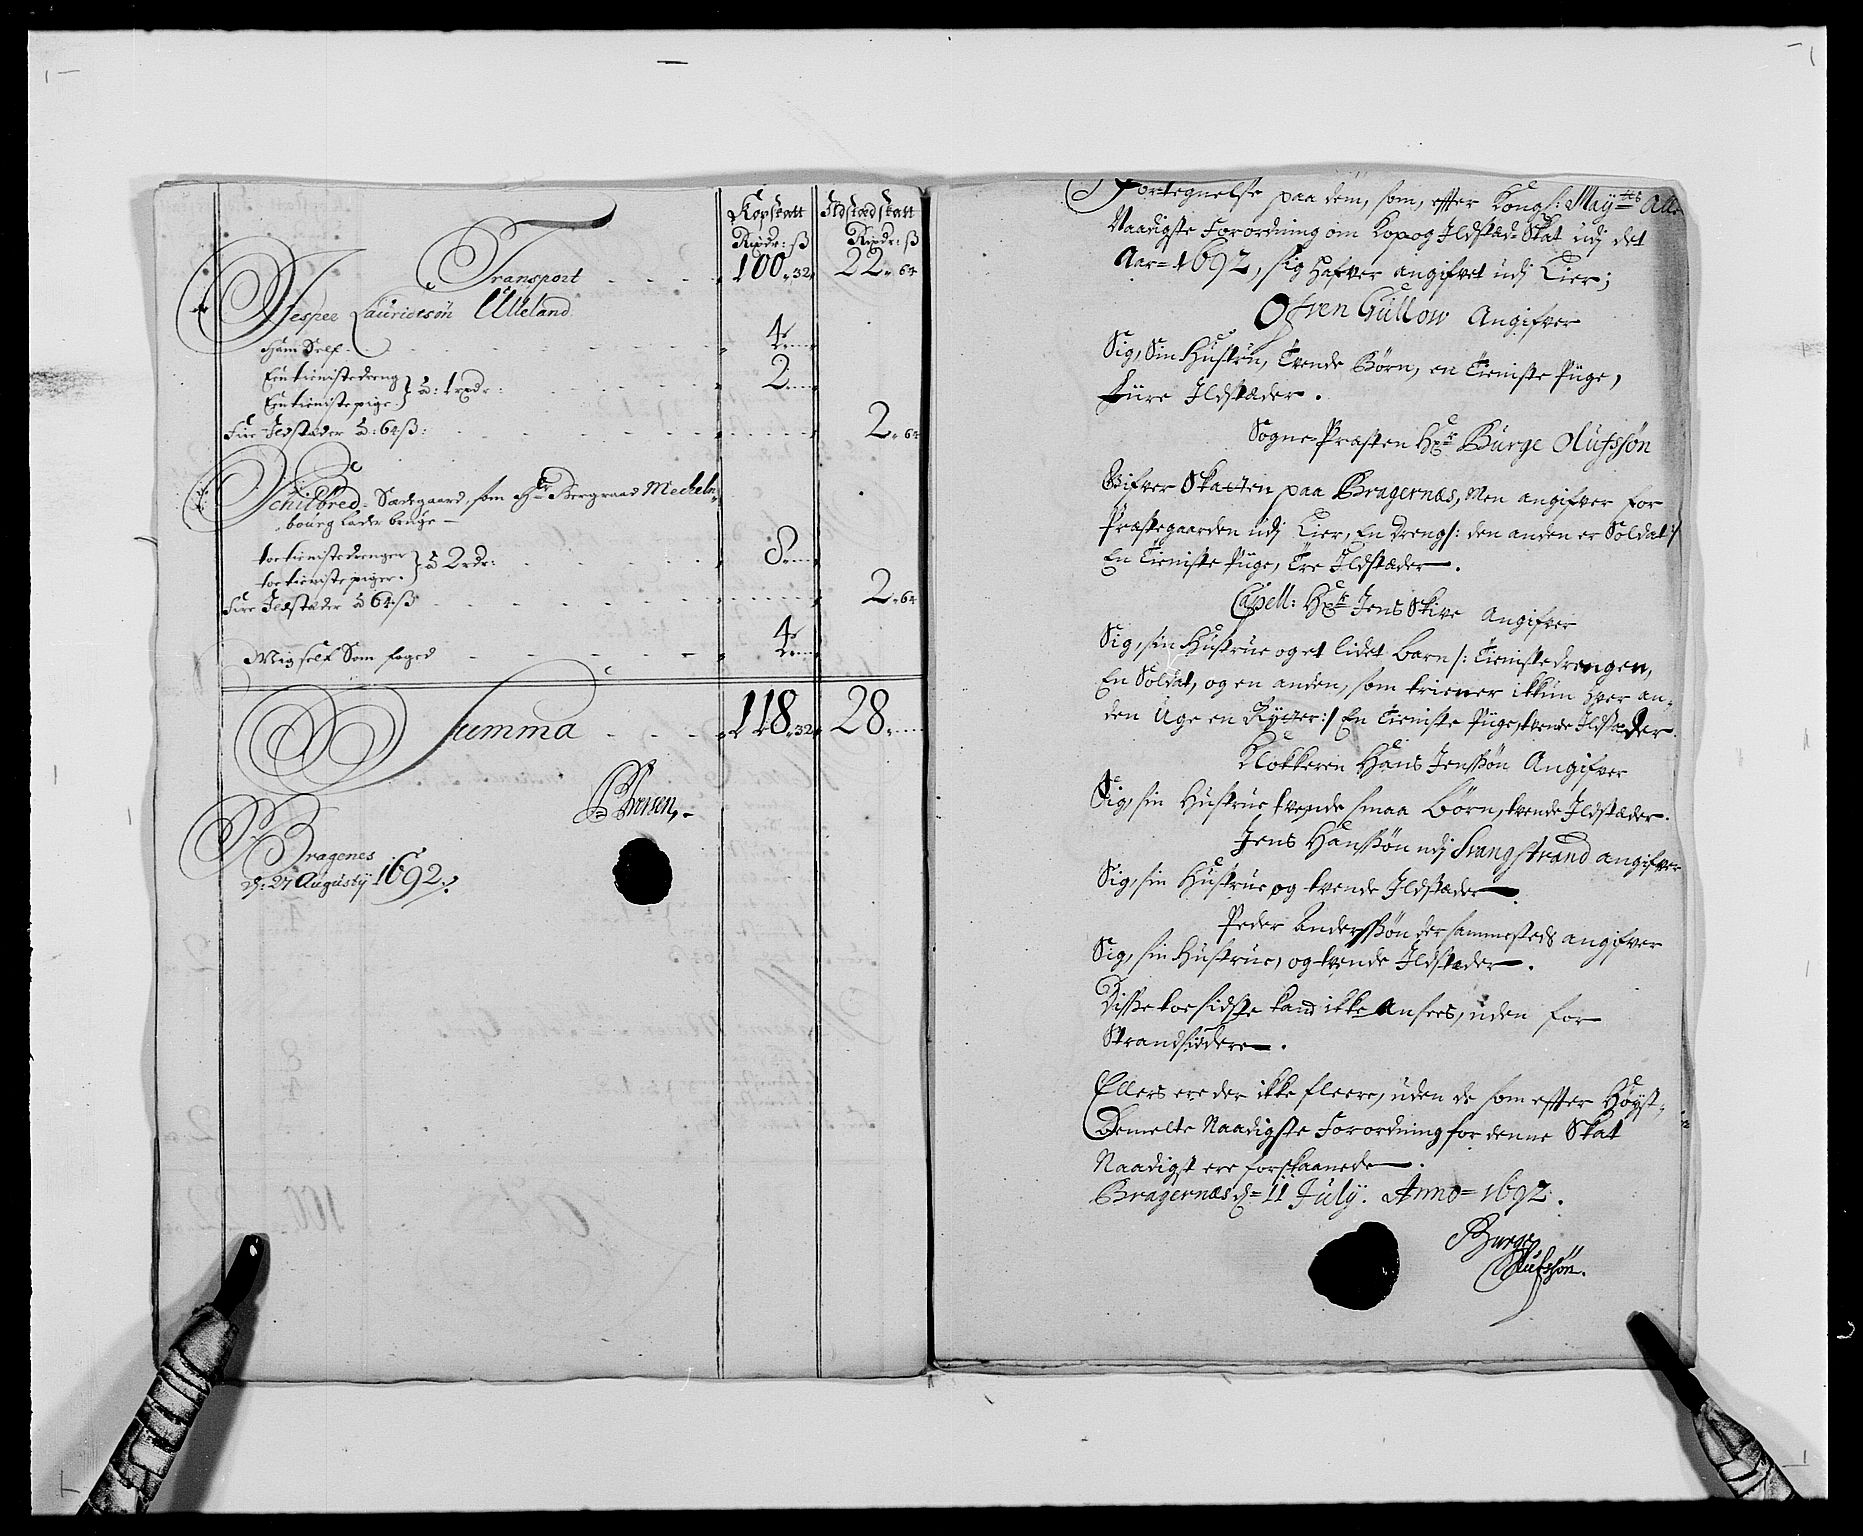 Kopskatt Ildstædskatt
Rixdr: ß Rixdr: ß
Transport 100 „ 32 „ 22 „ 64
Jesper Lauridesøn Ulleland
Ham Self 4 „
Een tienistedreng
Een tieniste pige } à: 1 rixdr: 2 „
Fire Ildstæder à: 64 ß: 2 „ 64
Schilbred: Sædegaard, som Hr Bergraad Mecheln„
bourg lader bruge –
toe tienistedrenger
toe tieniste piger } à 2 rdr: 8 „
Fire Ildstæder à 64 ß 2 „ 64
Mig self Som foged 4 „
Summa 118 „ 32 „ 28 „
Bragenes
d: 27 Augustij 1692 :/
Fortegnelse paa dem, som, effter Kongl: Mayts Aller
Naadigste Forordning om Kop og Ildstæd-Skat udj det
Aar= 1692, sig hafver angifvet udj Lier;
Ofven Gullow Angifver
Sig, Sin Hustru, Tvende Børn, en Tieniste Pige,
Fiire Ildstæder.
Sogne-Præsten Hr Børge Olufssøn
Gifver Skatten paa Bragernæs, Men angifver for
Præstegaarden udj Lier, En Dreng /: den anden er Soldat :/
En Tieniste Pige, Tre Ildstæder.
Capell: Hr Jens Skive Angifver
Sig, sin Hustrue og et lidet Barn /: Tienistedrengen,
En Soldat, og en anden, som tiener ikkun hver an„
den Uge en Rytter :/ En Tieniste Pige, tvende Ildstæder.
Klokkeren Hans Jenssøn Angifver
Sig, sin Hustrue tvende smaa Børn, tvende Ildstæder.
Jens Hanssøn udj Svangstrand angifver
Sig, sin Hustrue og tvende Ildstæder.
Peder Anderssøn der sammesteds angifver
Sig, sin Hustrue, og tvende Ildstæder.
Disse toe sidste kand ikke Ansees, uden for
Strandsiddere.
Ellers ere der ikke fleere, uden de som effter Høyst„
Bemelte Naadigste Forordning for denne Skat
Naadigst ere forskaanede.
Bragernæs d= 11 July. Anno= 1692.
Børge
Olufssøn.